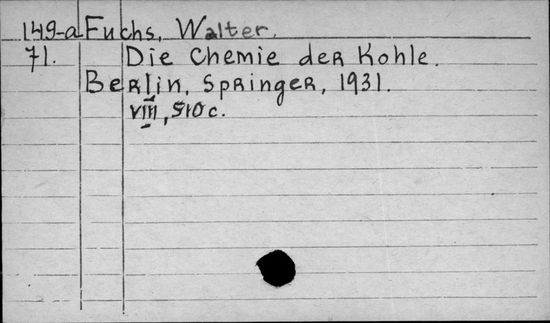 149-a Fuchs, Walter.
71. Die Chemie der Kohle.
Berlin, Springer, 1931.
VIII, 510 c.